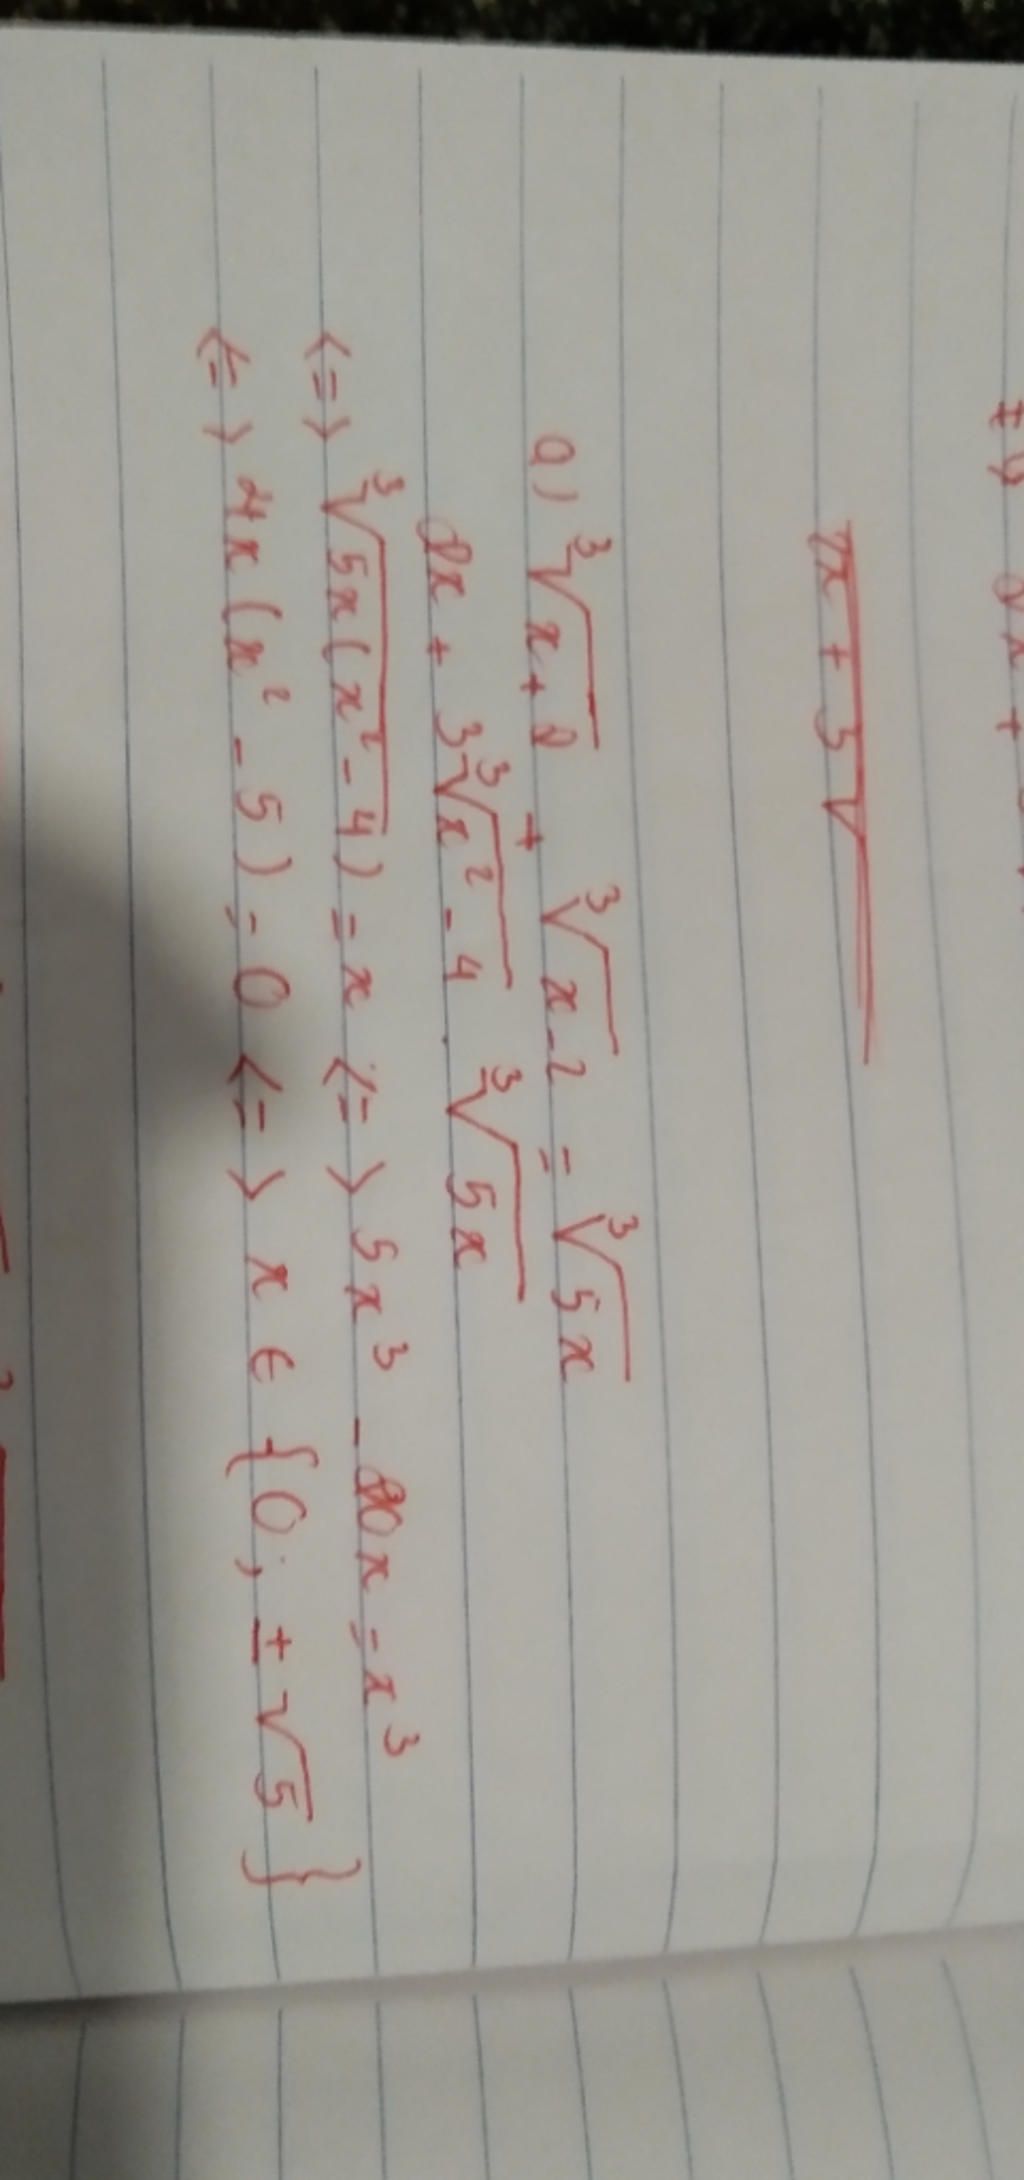 x + 3√
a) ∛(x+2) + ∛(x-2) = ∛(5x)
2x + 3∛(x² - 4) . ∛(5x)
<=> ∛(5x(x² - 4)) = x <=> 5x³ - 20x = x³
<=> 4x(x² - 5) = 0 <=> x ∈ {0; ±√5}